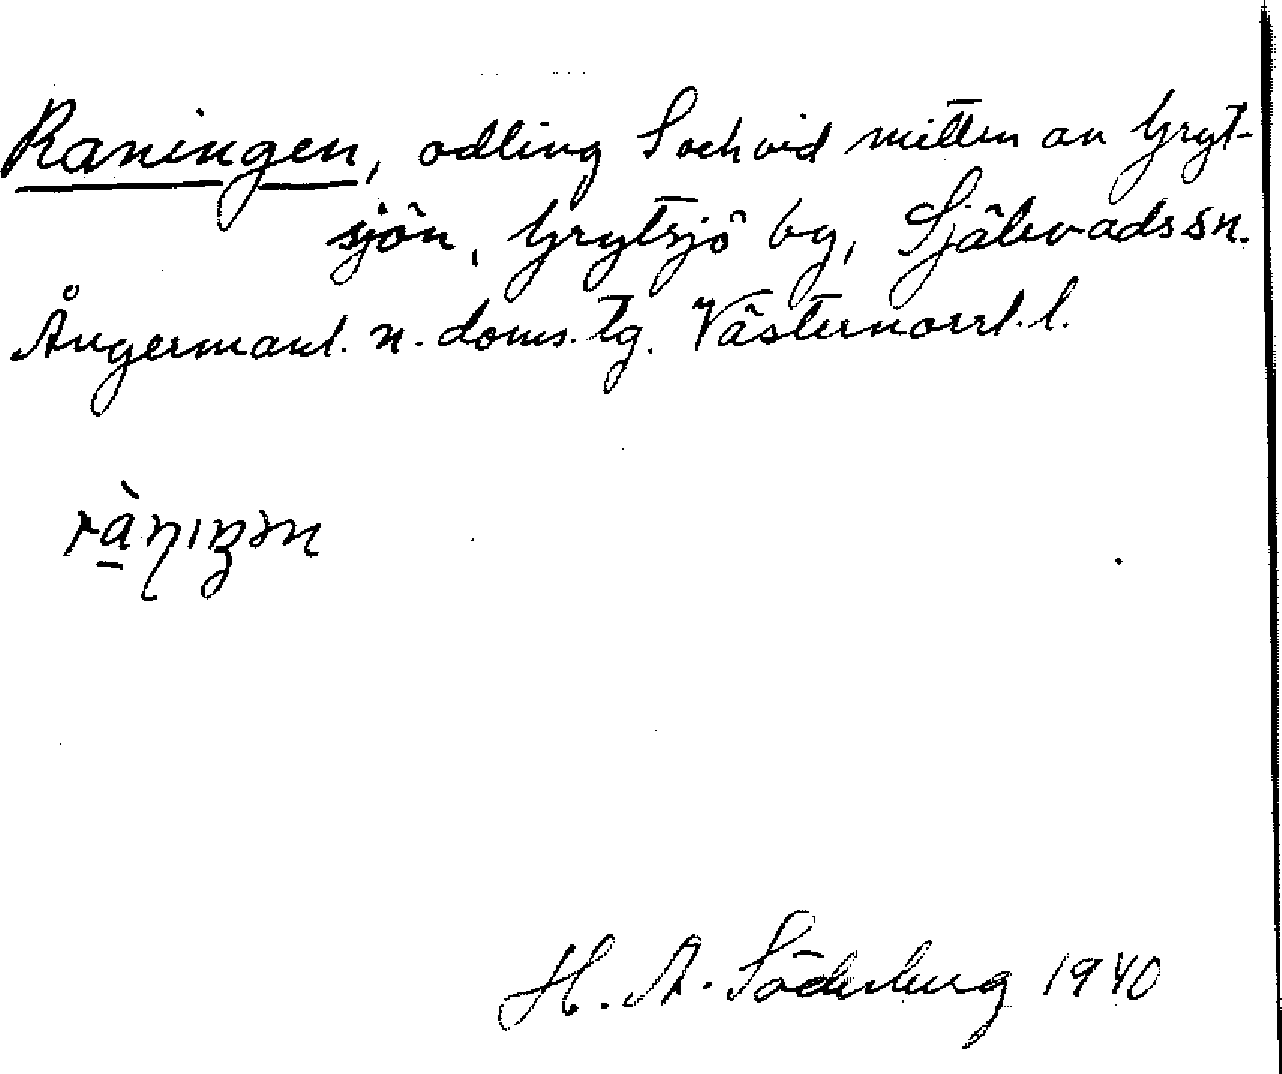 Raningen, odling S och vid mitten av Gryt-
sjön, Grytsjö by, Själevads sn.
Ångermanl. n. doms. tg. Västernorrl. l.
H. A. Söderberg 1940